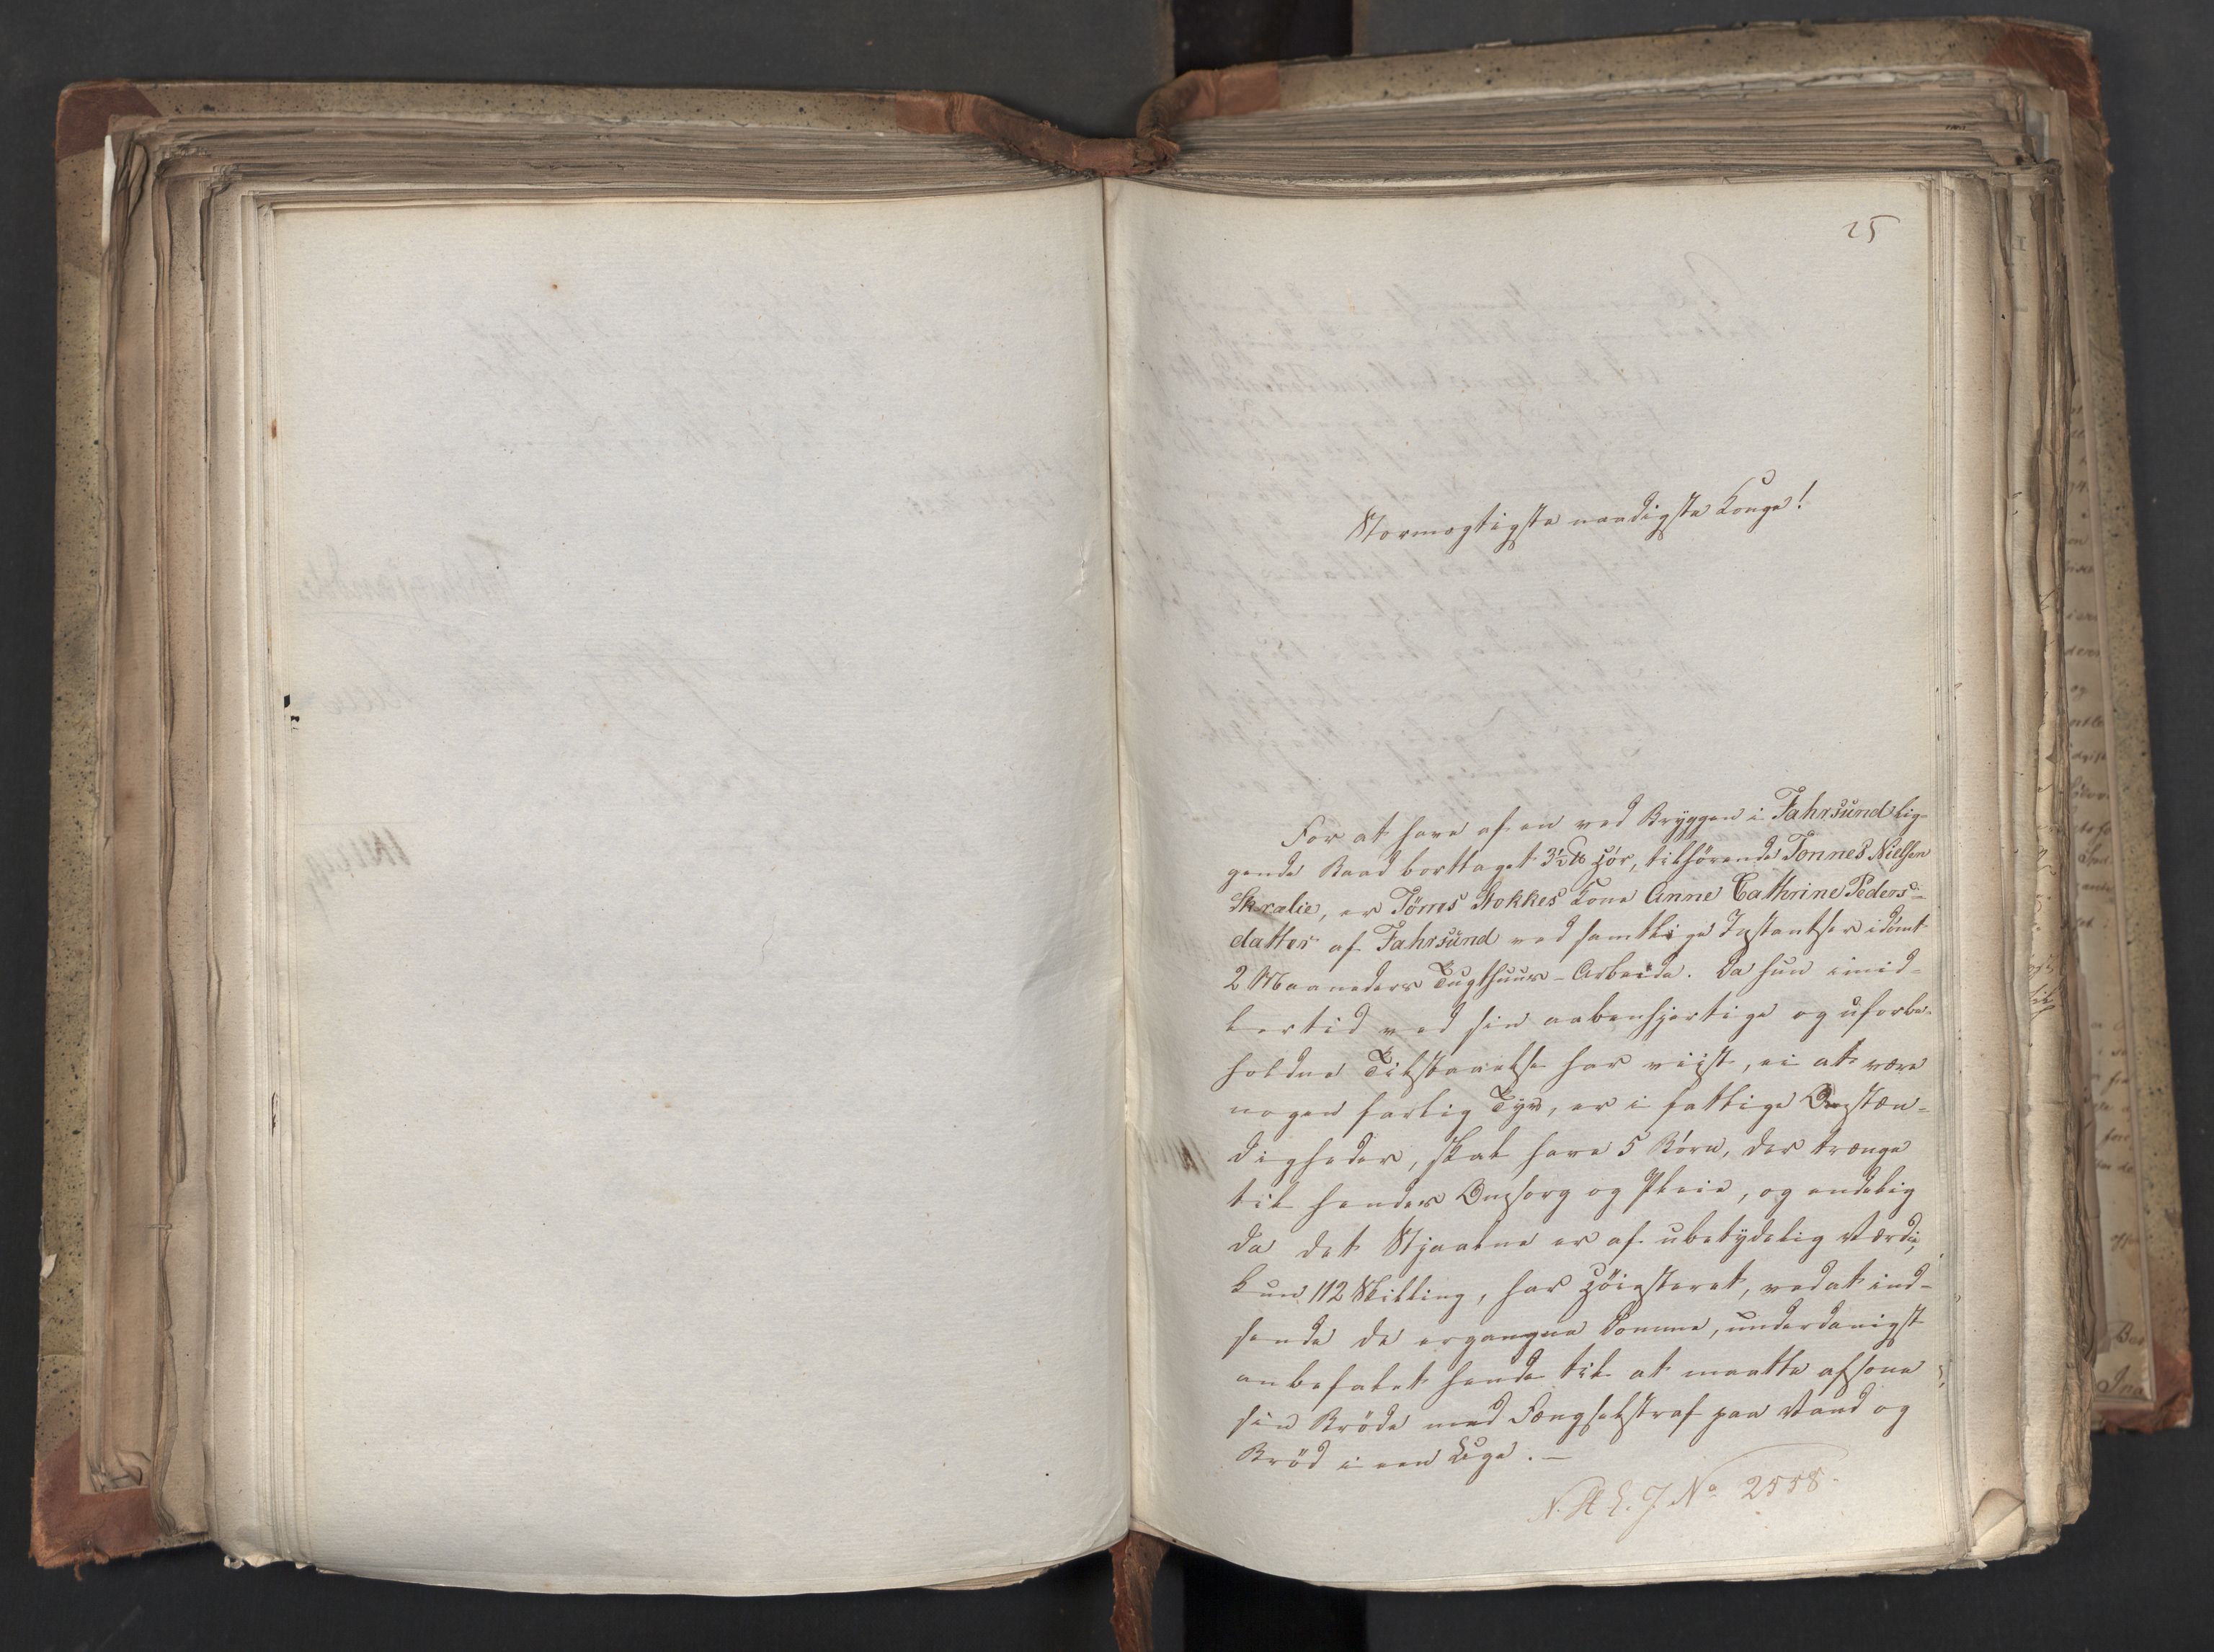 25
Stormægtigste naadigste Konge!
For at have af en ved Bryggen i Fahrsund lig-
gende Baad borttaget 3½ ℔ Hör, tilhörende Tonnes Nielsen
Skralie, er Töms Stokkes Kone Anne Cathrine Peders-
datter af Fahrsund ved samtlige Instantser idömt
2 Maaneders Tugthuus-Arbeide. Da hun imid-
lertid ved sin aabenhjertige og uforbe-
holdne Tilstaaelse har viist, ei at være
nogen farlig Tyv, er i fattige Omstæn-
digheder, skal have 5 Börn, der trænge
til hendes Omsorg og Pleie, og endelig
da det Stjaalne er af ubetydelig Værdi,
kun 112 Skilling, har Höiesteret, ved at ind-
sende de ergangne Domme, underdanigst
anbefalet hende til at maatte afsone
sin Bröde med Fængselstraf paa Vand og
Bröd i een Uge. —
N. St E. J. No 2558.